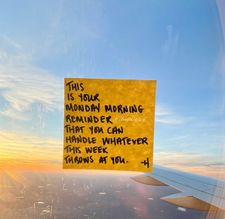 THIS
IS YOUR
MONDAY MORNING
REMINDER
THAT YOU CAN
HANDLE WHATEVER
THIS WEEK
THROWS AT YOU. -H